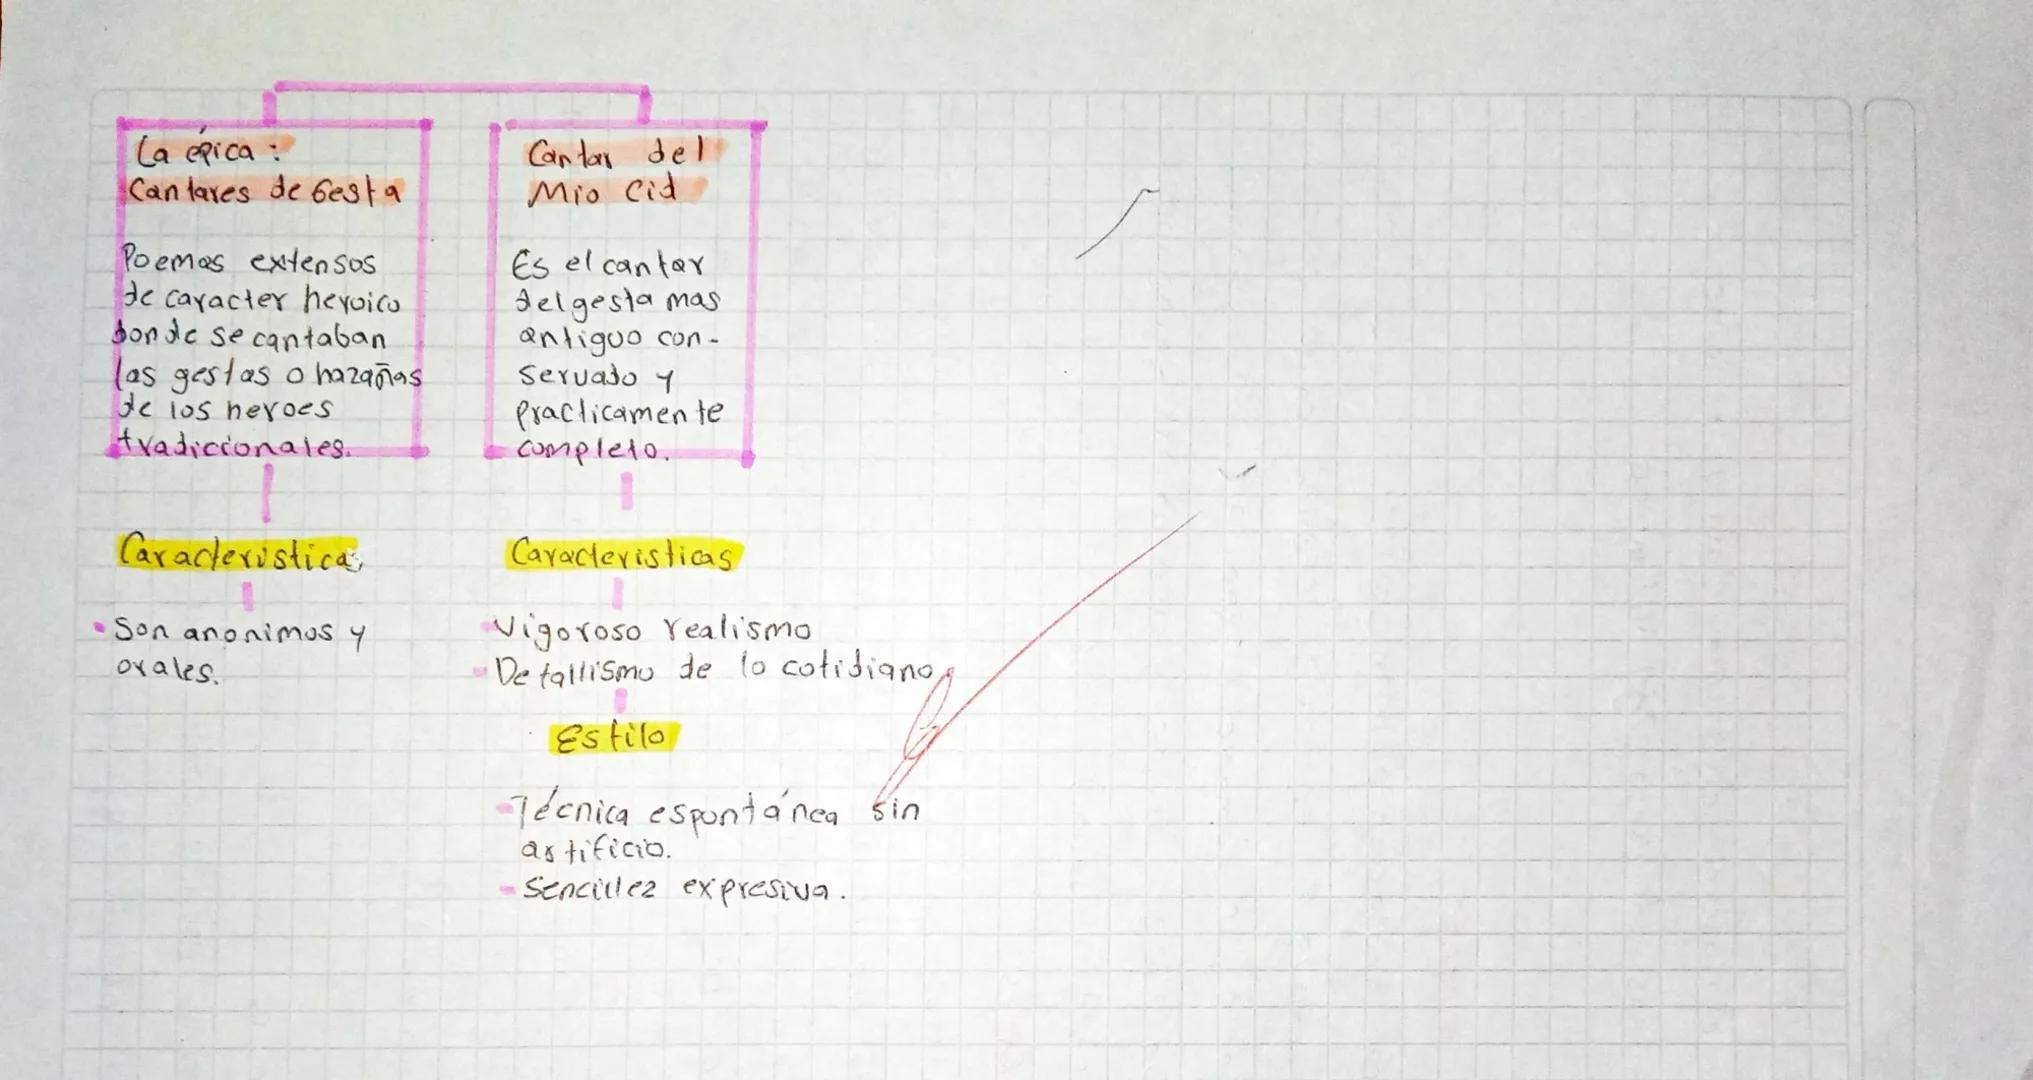 La épica:
Cantares de Gesta
Poemas extensos
de caracter heroico
donde se cantaban
las gestas o hazañas
de los heroes
tradicionales.
Caracteristicas
• Son anonimos y
orales.
Cantar del
Mio Cid
Es el cantar
del gesta mas
antiguo con-
servado y
practicamente
completo.
Caracteristicas
- Vigoroso realismo
- Detallismo de lo cotidiano
Estilo
- Técnica espontánea sin
artificio.
- Sencillez expresiva.